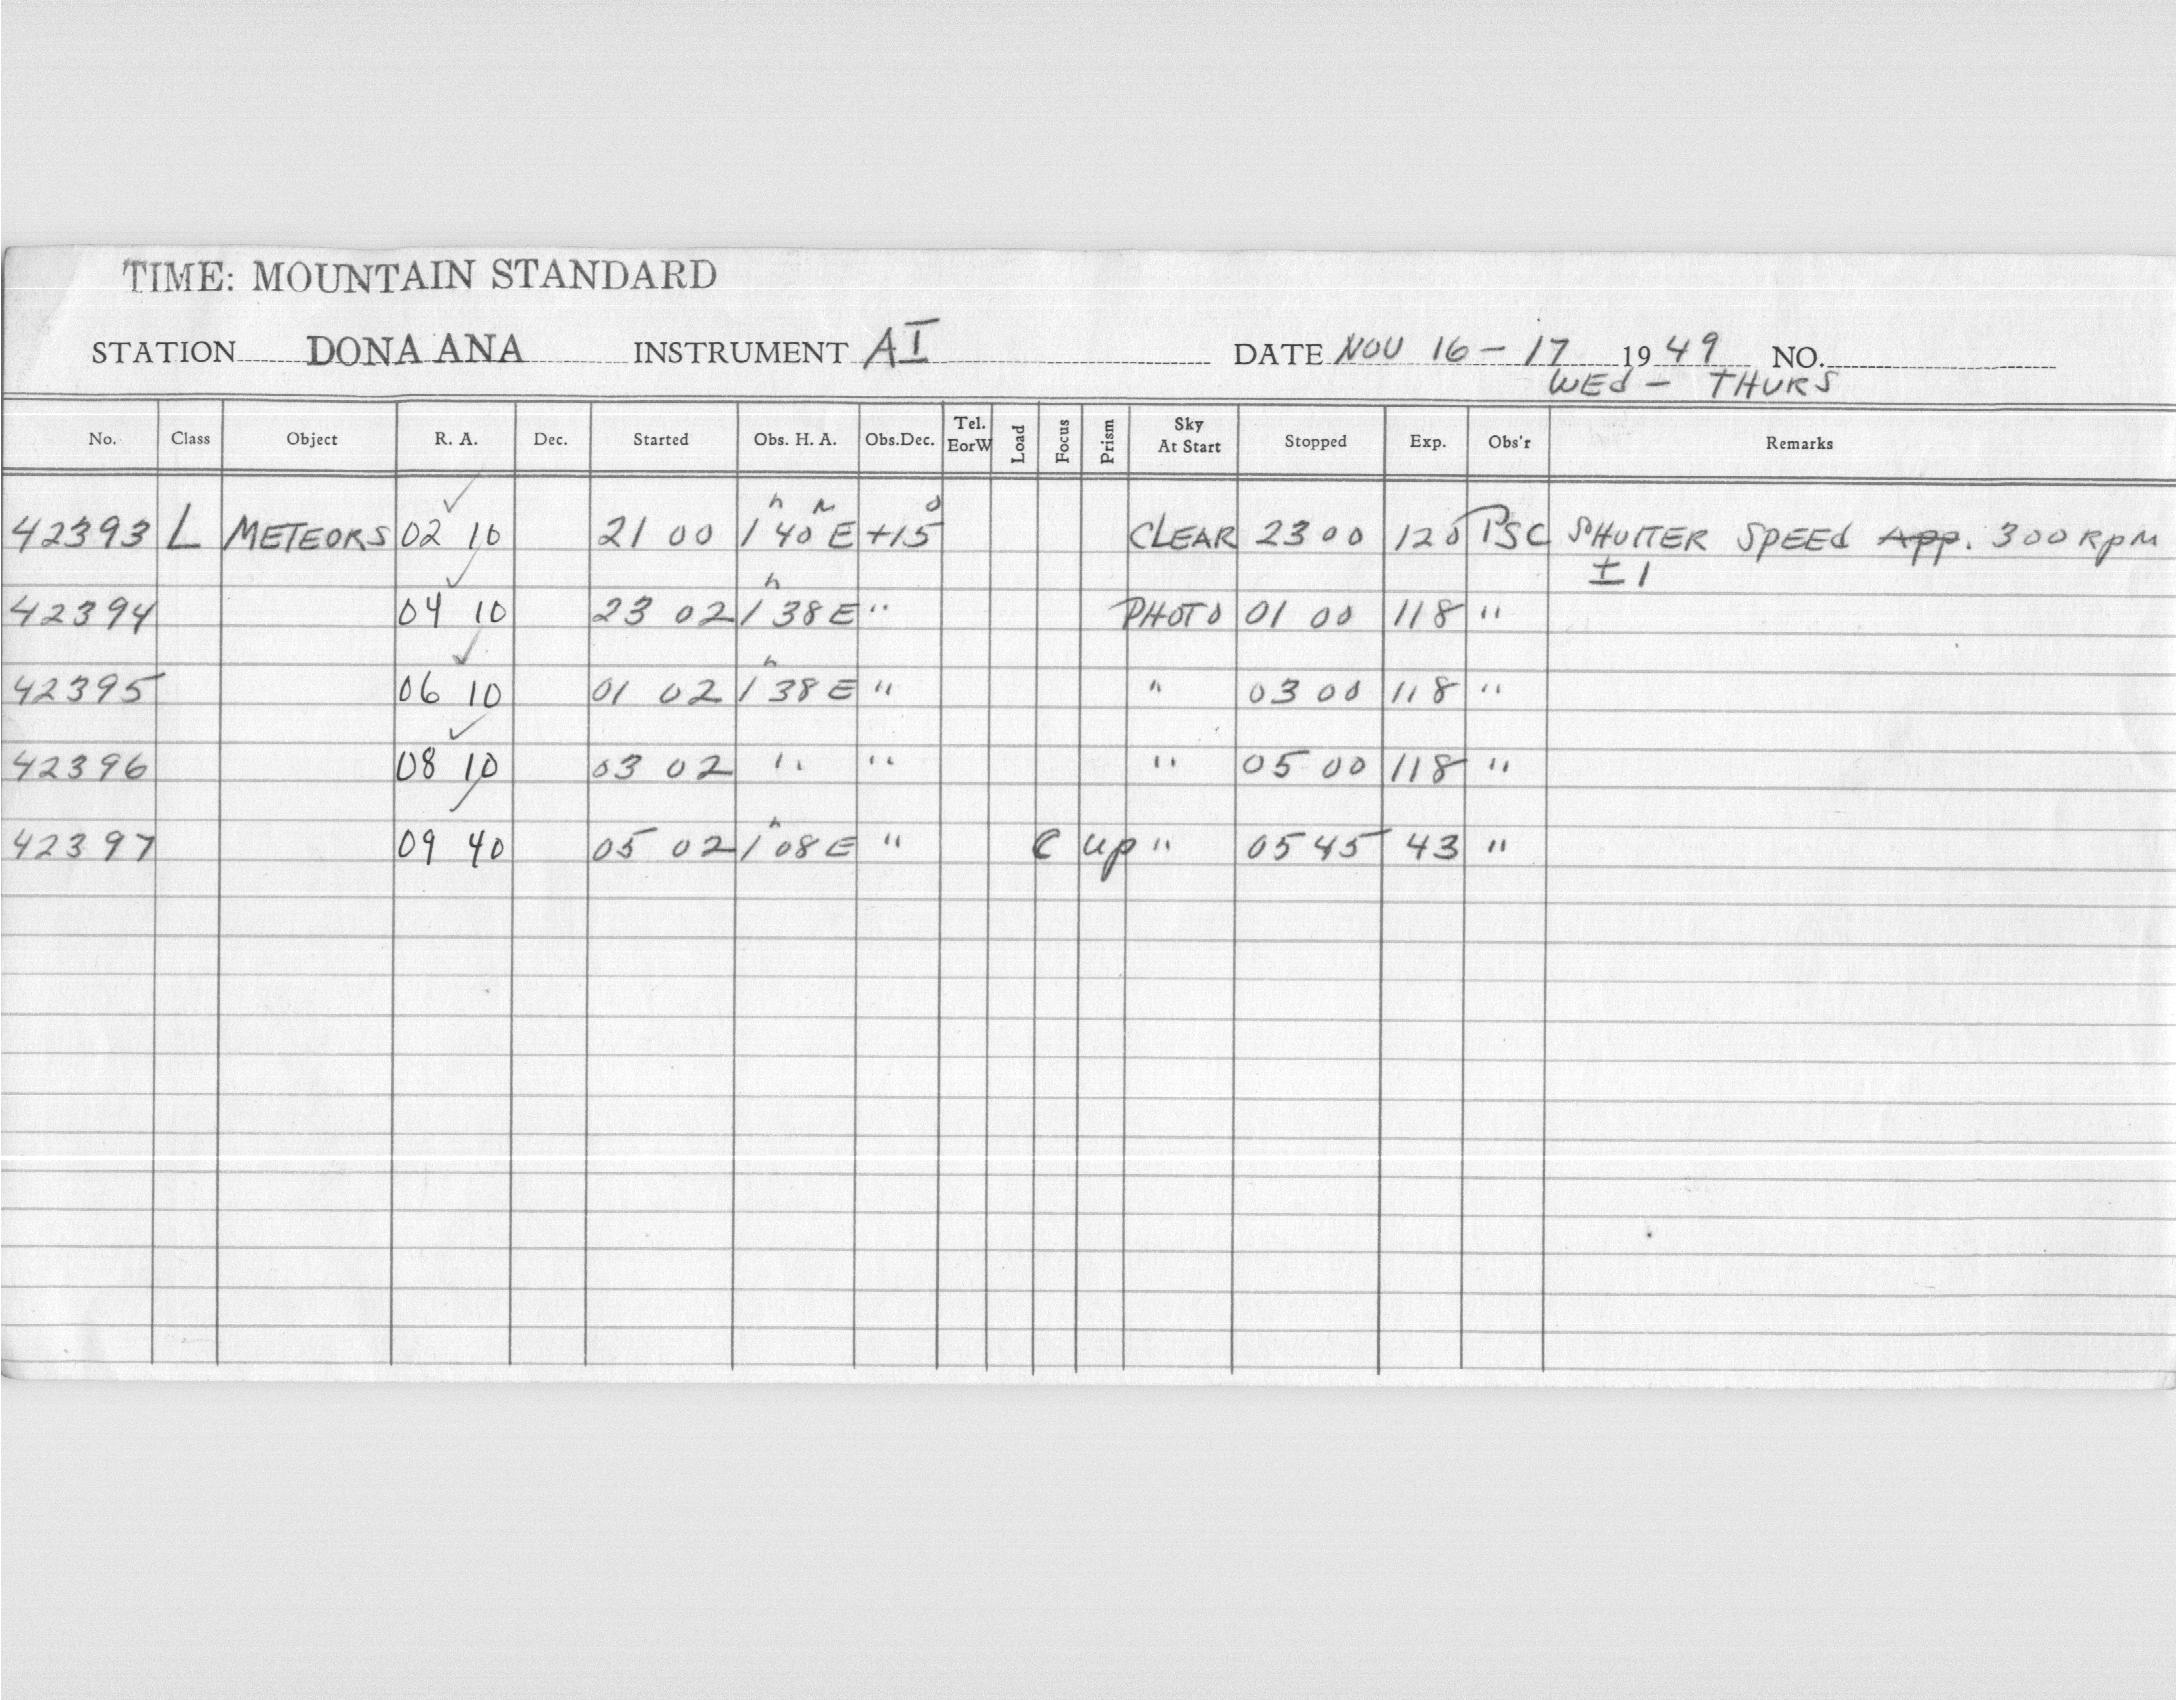 TIME: MOUNTAIN STANDARD
STATION DONA ANA INSTRUMENT AI DATE NOV 16 - 17 1949 NO.
WEd - THURS
No. Class Object R. A. Dec. Started Obs. H. A. Obs.Dec. Tel. EorW Load Focus Prism Sky At Start Stopped Exp. Obs'r Remarks
42393 L METEORS 02 10 21 00 1h 40m E +15° CLEAR 23 00 120 PSC SHUTTER SPEEd App. 300 RpM
± 1
42394 04 10 23 02 1h 38 E " PHOTO 01 00 118 "
42395 06 10 01 02 1h 38 E " " 03 00 118 "
42396 08 10 03 02 " " " 05 00 118 "
42397 09 40 05 02 1h 08 E " C up " 05 45 43 "